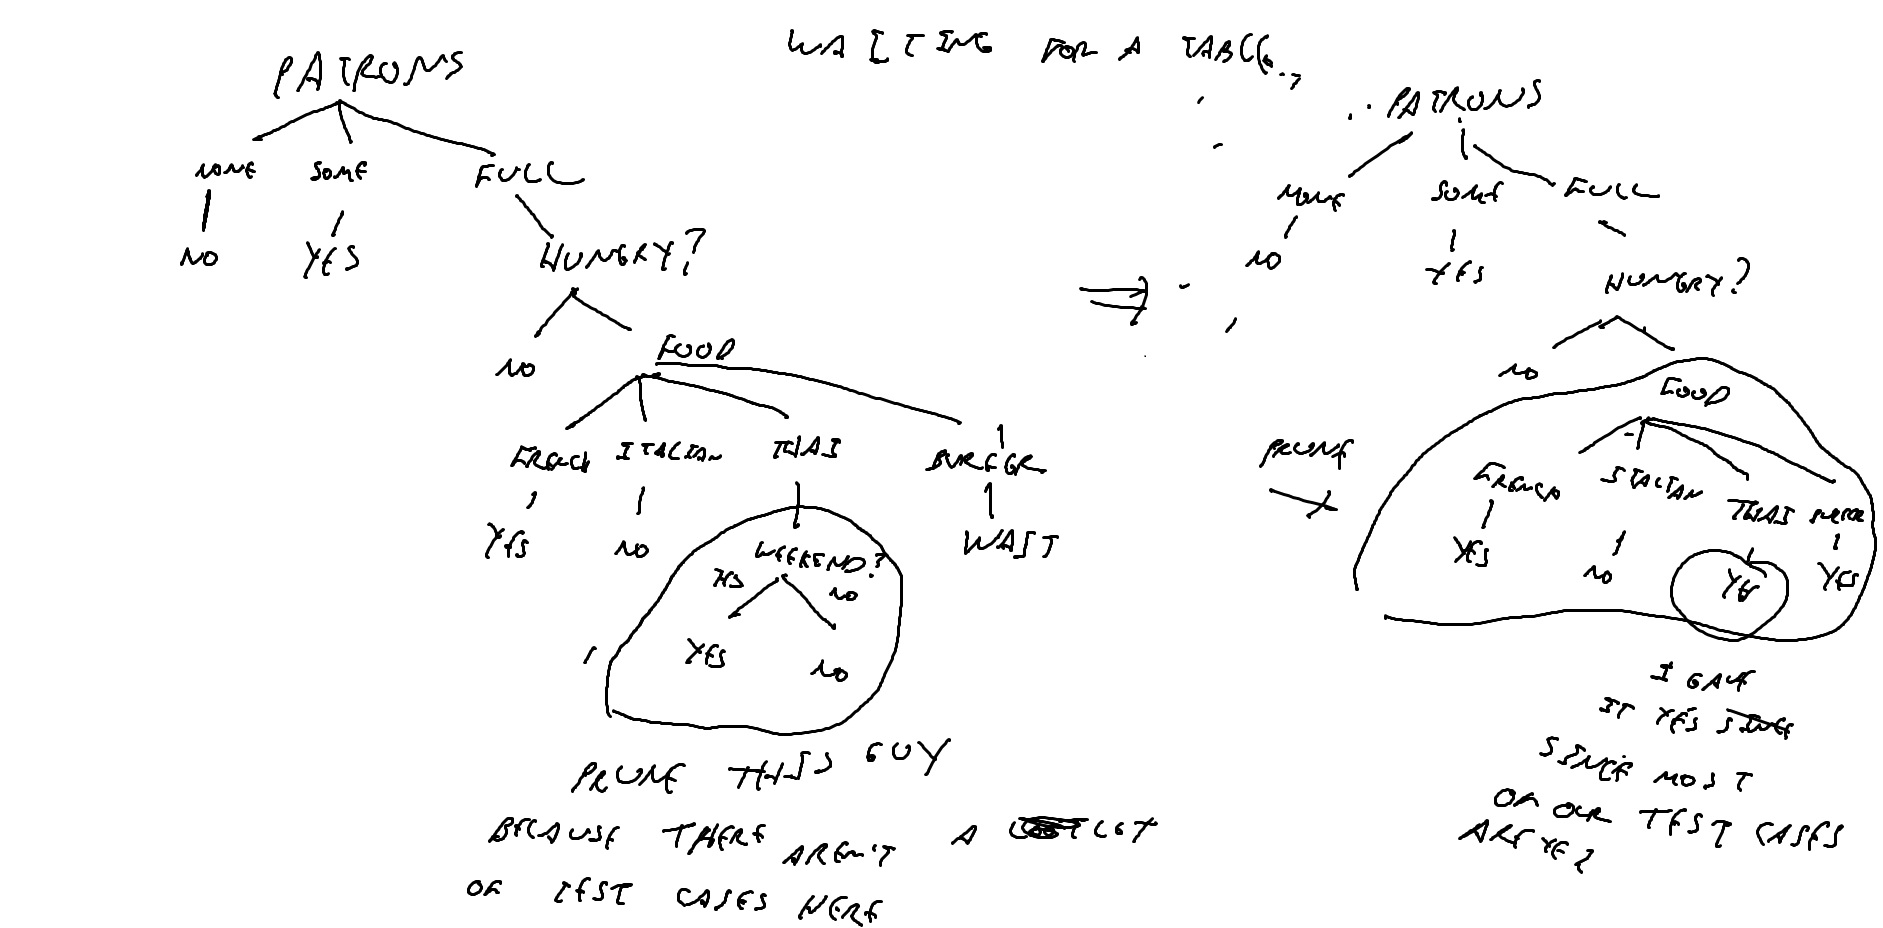 WAITING FOR A TABLE...
PATRONS
NONE SOME FULL
NO YES HUNGRY?
NO FOOD
FRENCH ITALIAN THAI BURGER
YES NO WEEKEND? WAIT
YES NO
YES NO
PRUNE THIS GUY
BECAUSE THERE AREN'T A LOT
OF TEST CASES HERE
PATRONS
NONE SOME FULL
NO YES HUNGRY?
NO FOOD
PRUNE
FRENCH ITALIAN THAI BURGER
YES NO YES YES
I GAVE
IT YES SINCE
SINCE MOST
OF OUR TEST CASES
ARE YES